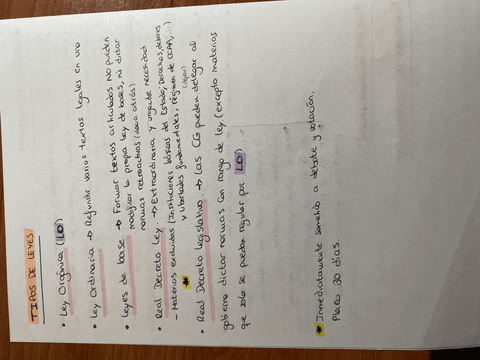 TIPOS DE LEYES
• Ley Orgánica (LO)
• Ley Ordinaria → Refundir varios textos legales en uno
• Leyes de base → Formar textos articulados. No pueden
modificar la propia ley de bases, ni dictar
normas retroactivas (hacia atrás)
• Real Decreto Ley → Extraordinaria y urgente necesidad
- Materias excluidas (Instituciones básicas del Estado, Derechos, deberes
y libertades fundamentales, régimen de CCAA, ...)
* (dejar)
• Real Decreto legislativo → Las CG pueden delegar al
gobierno dictar normas con rango de ley (excepto materias
que solo se pueden regular por LO)
* Inmediatamente sometido a debate y votación.
Plazo 30 días.